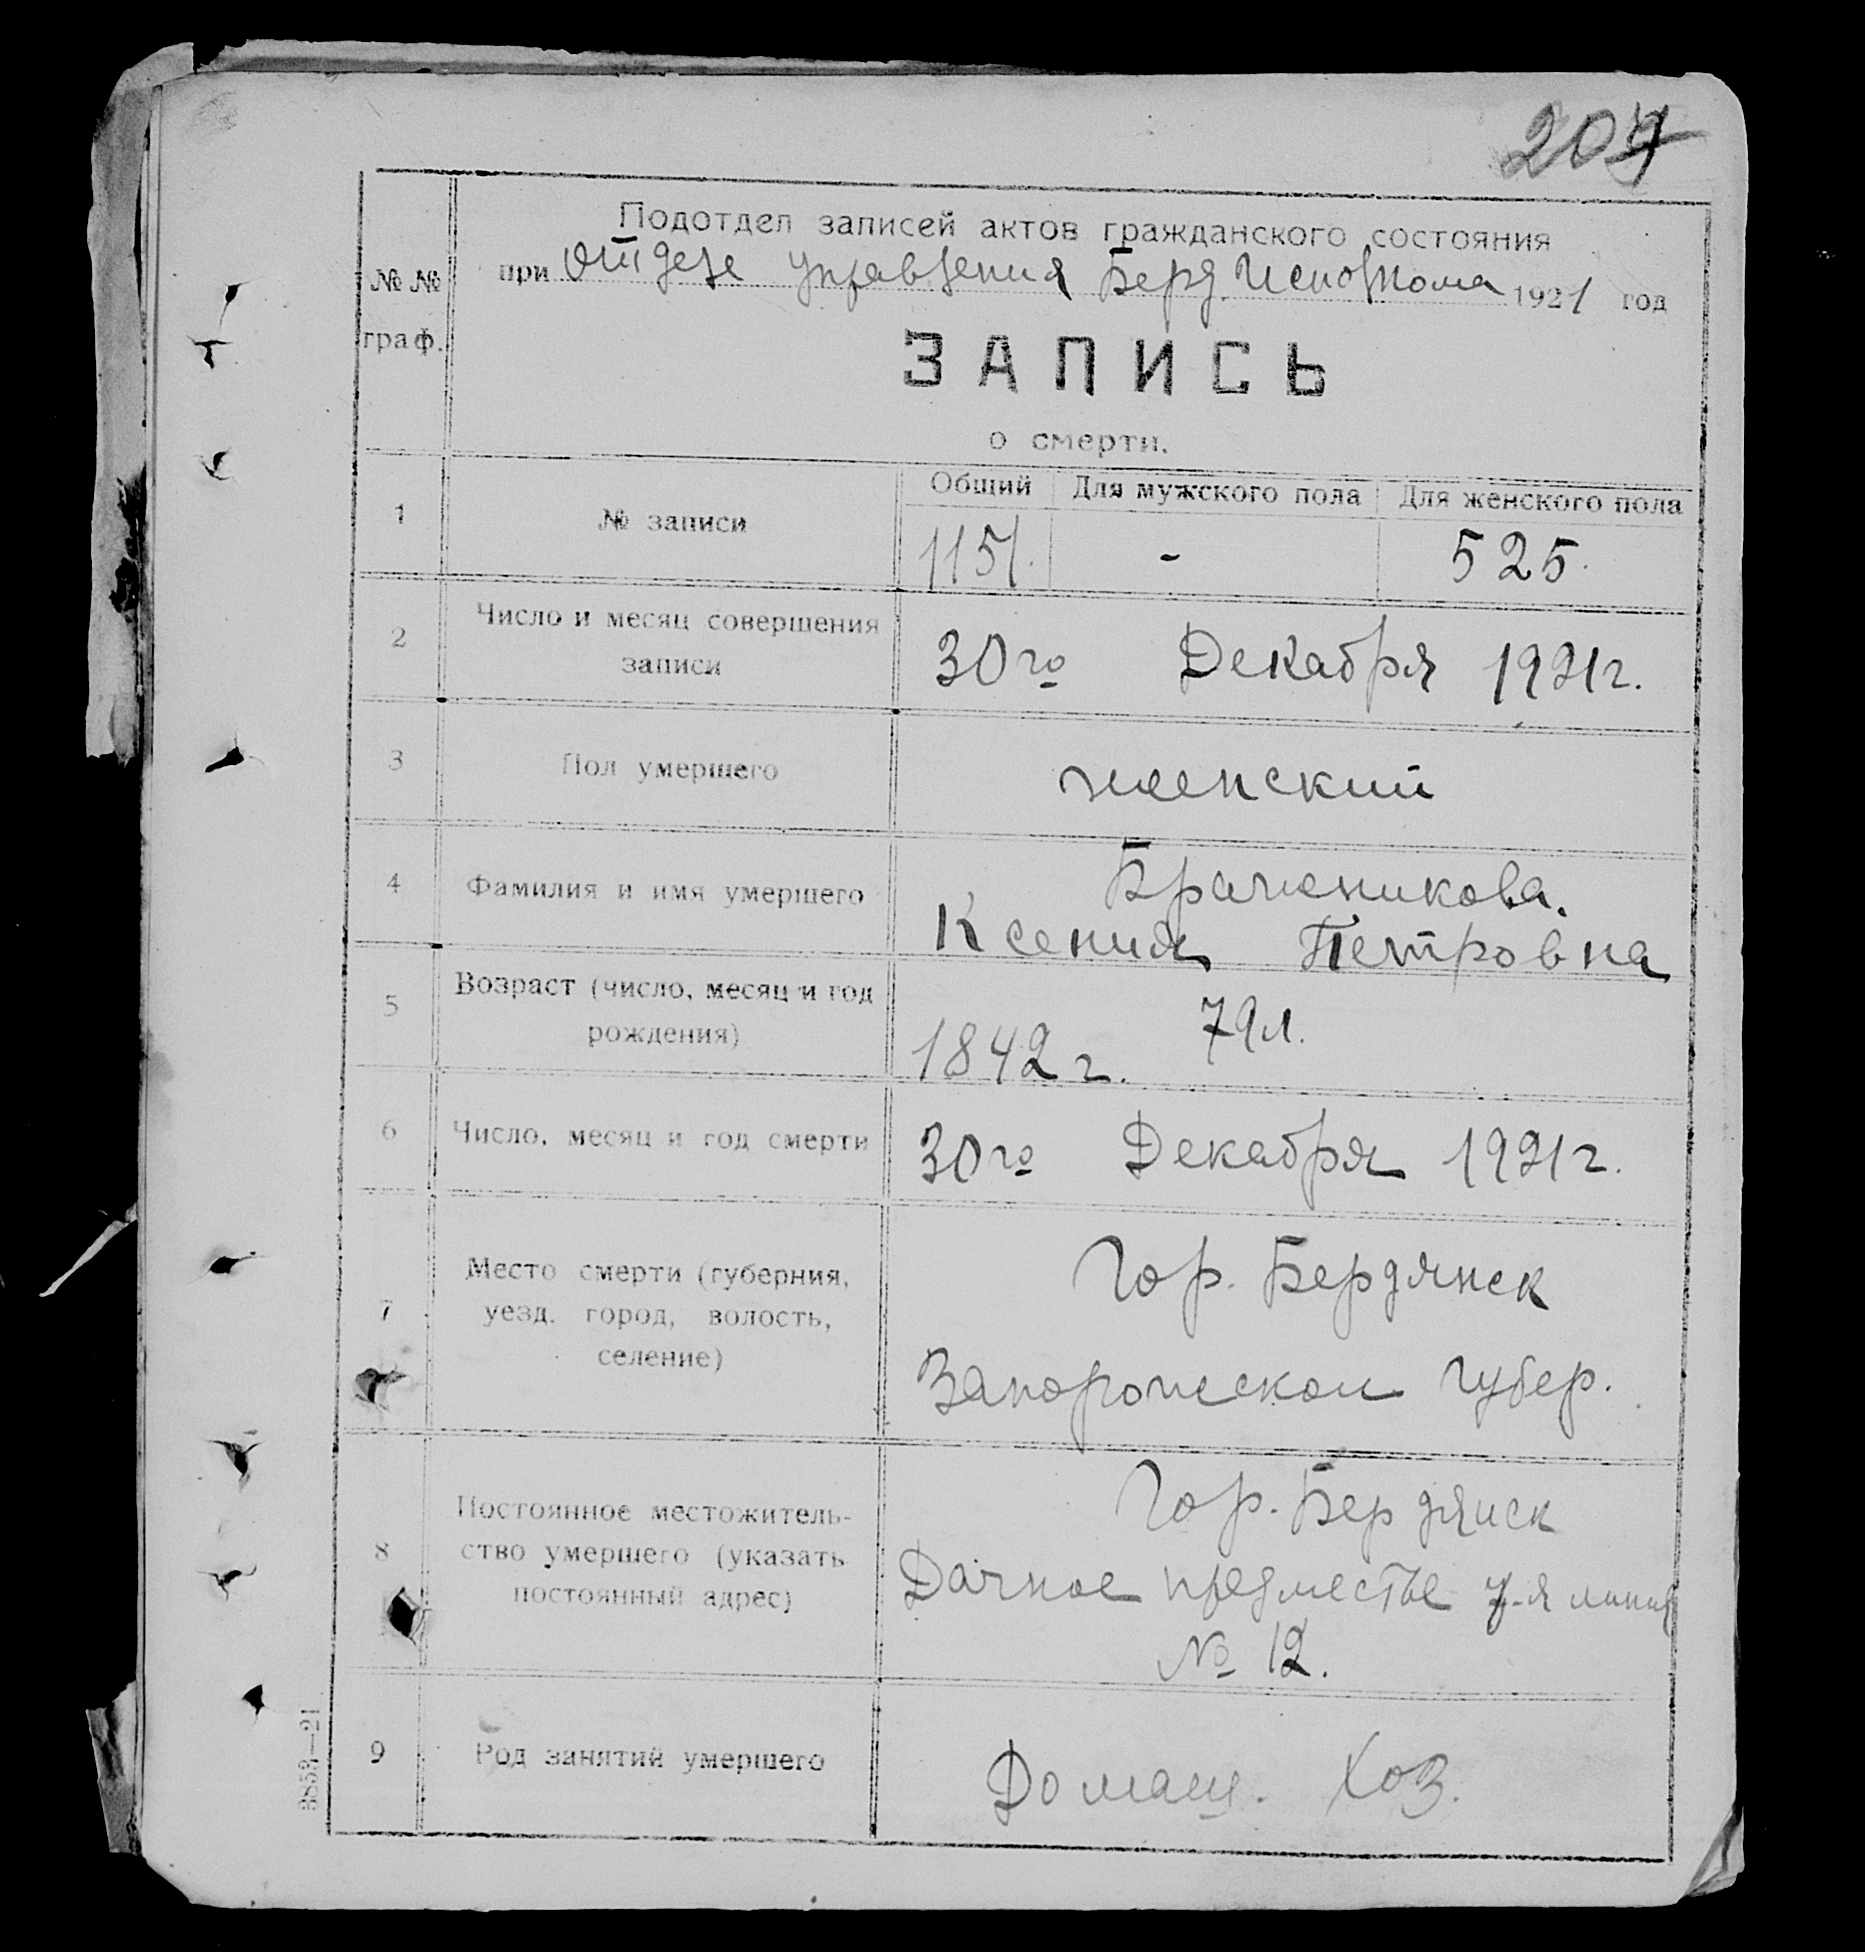 204
Подотдел записей актов гражданского состояния
при Отделе управления Берд. Исполкома 1921 год
№ №
граф.
ЗАПИСЬ
о смерти.
Общий Для мужского пола Для женского пола
1 № записи 1151. - 525.
2 Число и месяц совершения
записи
30го Декабря 1921г.
3 Пол умершего женский
4 Фамилия и имя умершего
Ксения Петровна
5 Возраст (число, месяц и год
рождения)
79л.
1842 г.
6 Число, месяц и год смерти 30го Декабря 1921г.
7 Место смерти (губерния,
уезд, город, волость,
селение)
Гор. Бердянск
Запорожской губер.
8 Постоянное местожитель-
ство умершего (указать
постоянный адрес)
Гор. Бердянск
Дачное предместье 7-я линия
№ 12.
9 Род занятий умершего Домаш. Хоз.
3853—21